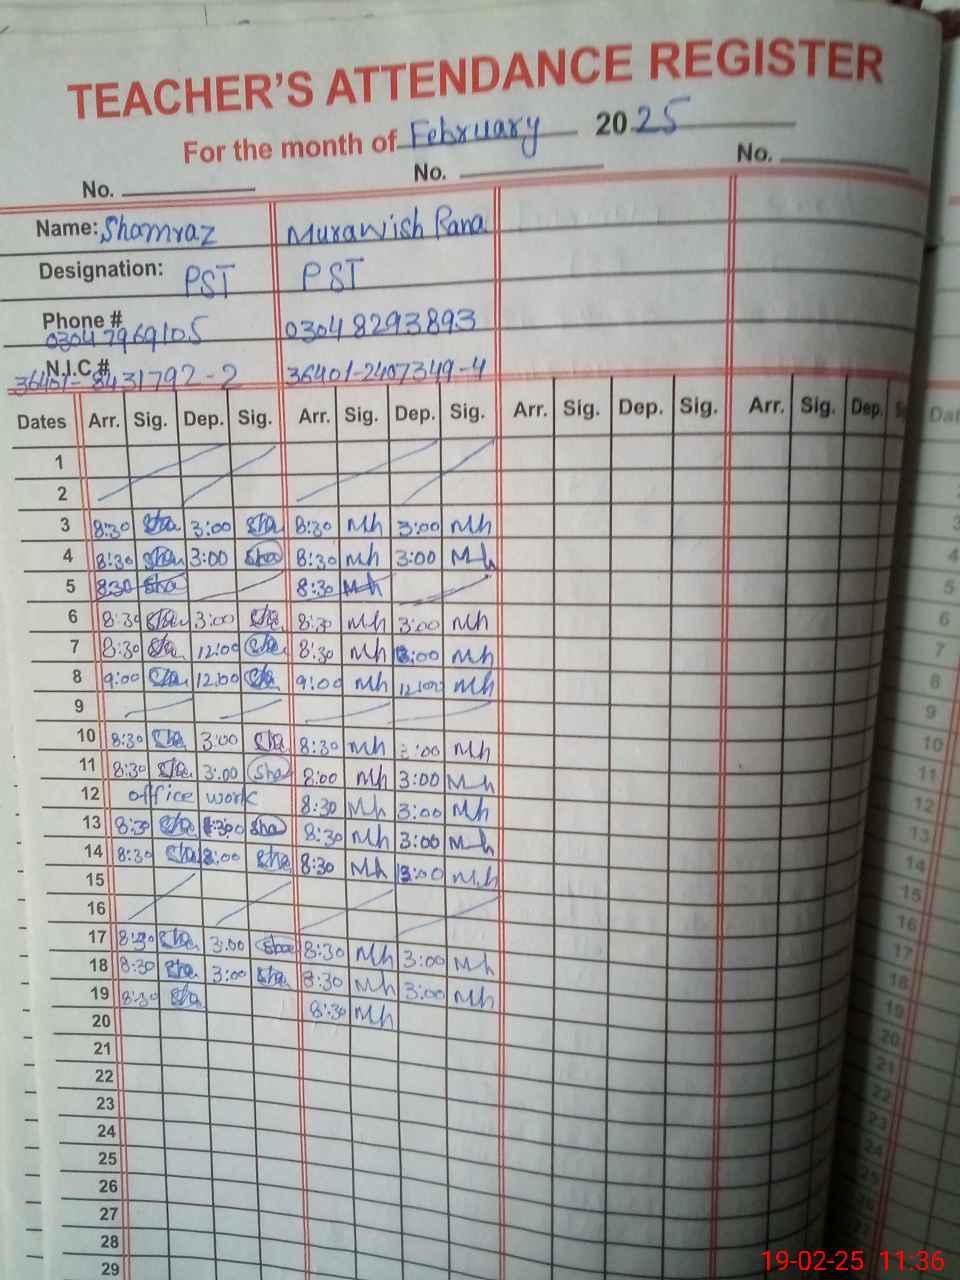 TEACHER'S ATTENDANCE REGISTER
For the month of February 2025
No. No. No.
Name: Shamraz Murawish Rana
Designation: PST PST
Phone # 03047969105 03048293893
N.I.C.# 36401-8431792-2 36401-2407349-4
Dates Arr. Sig. Dep. Sig. Arr. Sig. Dep. Sig. Arr. Sig. Dep. Sig. Arr. Sig. Dep.
1
2
3 8:30 Sha 3:00 Sha 8:30 Mh 3:00 Mh
4 8:30 Sha 3:00 Sha 8:30 Mh 3:00 Mh
5 8:30 Sha 8:30 Mh
6 8:30 Sha 3:00 Sha 8:30 Mh 3:00 Mh
7 8:30 Sha 12:00 Sha 8:30 Mh :00 Mh
8 9:00 Sha 12:00 Sha 9:00 Mh 12:00 Mh
9
10 8:30 Sha 3:00 Sha 8:30 Mh 3:00 Mh
11 8:30 Sha 3:00 Sha 8:00 Mh 3:00 Mh
12 office work 8:30 Mh 3:00 Mh
13 8:30 Sha Sha 8:30 Mh 3:00 Mh
14 8:30 Sha 3:00 Sha 8:30 Mh 3:00 Mh
15
16
17 8:30 Sha 3:00 Sha 8:30 Mh 3:00 Mh
18 8:30 Sha 3:00 Sha 8:30 Mh 3:00 Mh
19 8:30 Sha 8:30 Mh
20
21
22
23
24
25
26
27
28
29
19-02-25 11:36